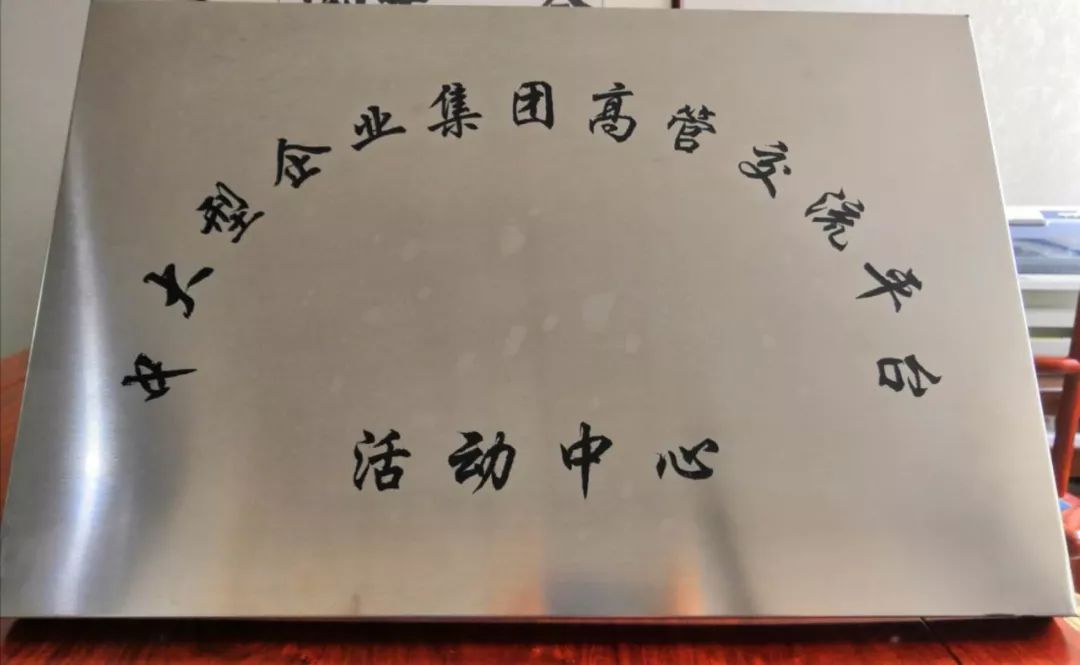 中大型企业集团高管交流平台
活动中心